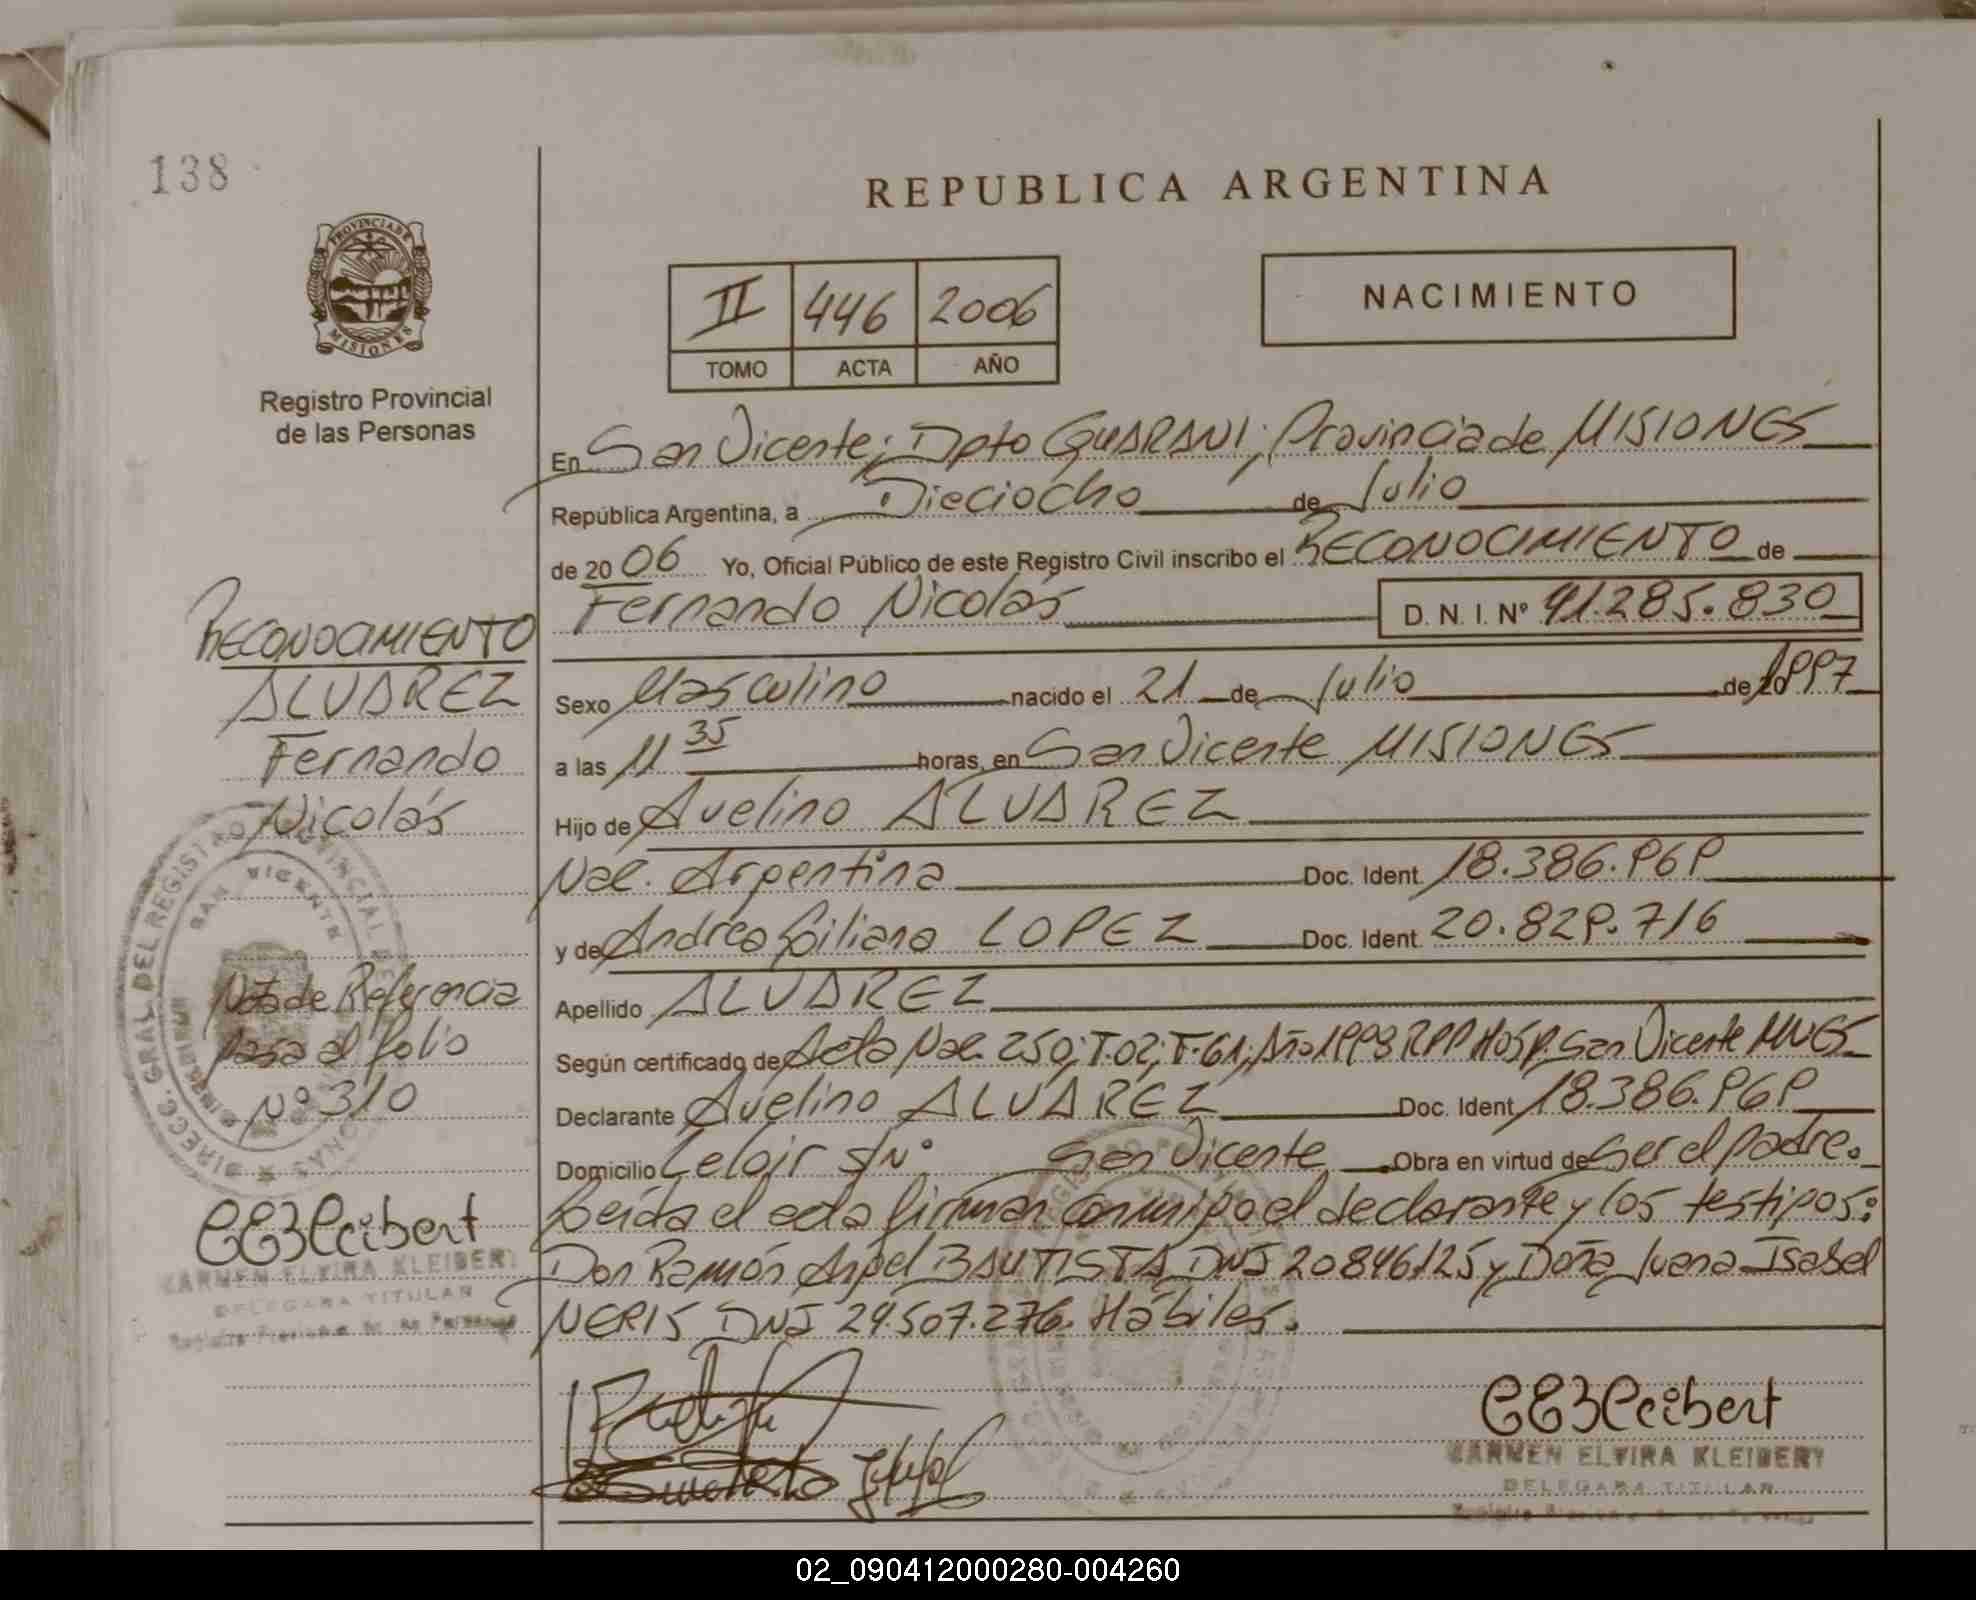 138
REPUBLICA ARGENTINA
PROVINCIA DE
MISIONES
Registro Provincial
de las Personas
II 446 2006
TOMO ACTA AÑO
NACIMIENTO
En San Vicente; Dpto GUARANI; Provincia de MISIONES
República Argentina, a Dieciocho de Julio
de 2006 Yo, Oficial Público de este Registro Civil inscribo el RECONOCIMIENTO de
Fernando Nicolás D. N. I. Nº 41.285.830
Sexo Masculino nacido el 21 de Julio de 1997
a las 11 35 horas, en San Vicente MISIONES
Hijo de Avelino ALVAREZ
Nac. Argentina Doc. Ident. 18.386.969
y de Andrea Liliana LOPEZ Doc. Ident. 20.829.716
Apellido ALVAREZ
Según certificado de Acta Nac. 250; T.02; F.61; Año 1998 RPP Hosp. San Vicente MNES
Declarante Avelino ALVAREZ Doc. Ident 18.386.969
Domicilio Leloir S/Nº San Vicente Obra en virtud de Ser el padre.
Leída el acta firman conmigo el declarante y los testigos:
Don Ramón Angel BAUTISTA DNI 20846125 y Doña Juana Isabel
NERIS DNI 24.507.276. Hábiles.
RECONOCIMIENTO
ALVAREZ
Fernando
Nicolás
Nota de Referencia
pasa al folio
Nº 310
DIRECC. GRAL DEL REGISTRO PROVINCIAL DE
SAN VICENTE
CEKleibert
KARMEN ELVIRA KLEIBERT
DELEGADA TITULAR
Registro Provincial de las Personas
CEKleibert
KARMEN ELVIRA KLEIBERT
DELEGADA TITULAR
02_090412000280-004260